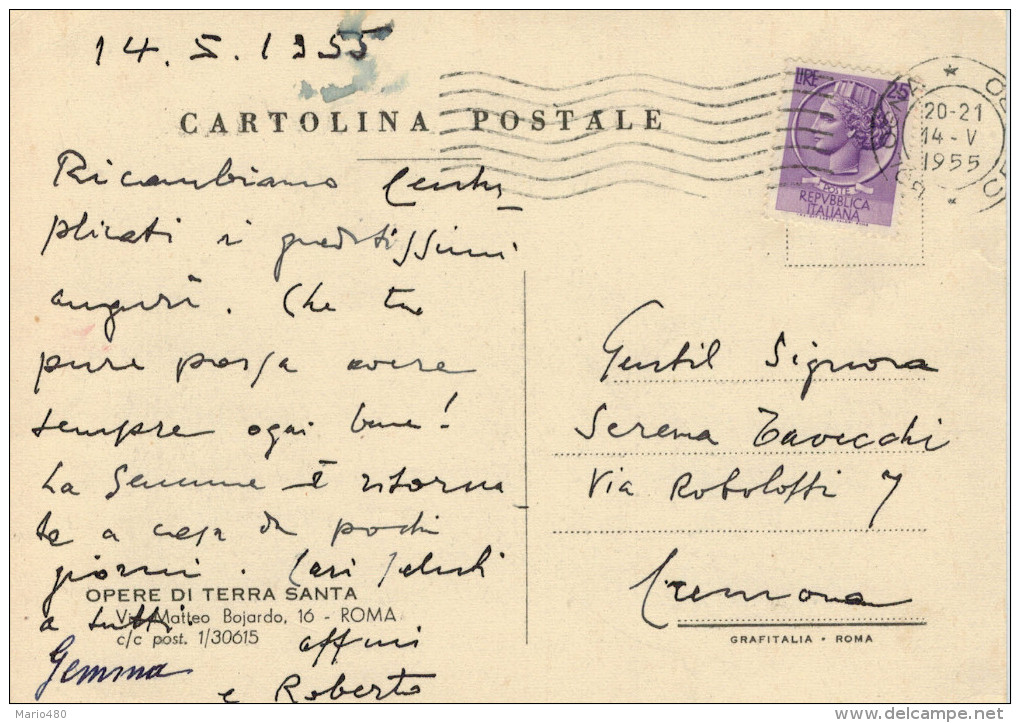 14.5.1955
CARTOLINA POSTALE
LIRE 25
POSTE
REPVBBLICA
ITALIANA
20-21
14-V
1955
Ricambiamo Centu
plicati i graditissimi
auguri. Che tu
pure possa avere
sempre ogni bene!
La è ritorna
ta a casa da pochi
giorni. Cari saluti
a tutti.
affmi
Gemma
e Roberto
Gentil Signora
Serena Tavecchi
Via Robolotti 7
Cremona
OPERE DI TERRA SANTA
Via Matteo Bojardo, 16 - ROMA
c/c post. 1/30615
GRAFITALIA • ROMA
Mario480